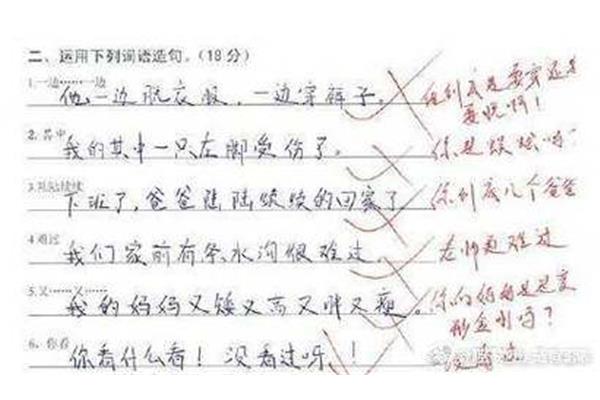 二、运用下列词语造句。(18分)
1.一边……一边
他一边脱衣服，一边穿裤子。 你到底是要穿还是
要脱啊！
2.其中
我的其中一只左脚受伤了。 你是蜈蚣吗？
3.陆陆续续
下班了，爸爸陆陆续续的回家了 你到底几个爸爸
4.难过
我们家前有条水沟很难过。 老师更难过
5.又……又……
我的妈妈又矮又高又胖又瘦。 你的妈妈是变
形金刚吗？
6.你看
你看什么看！没看过呀！！